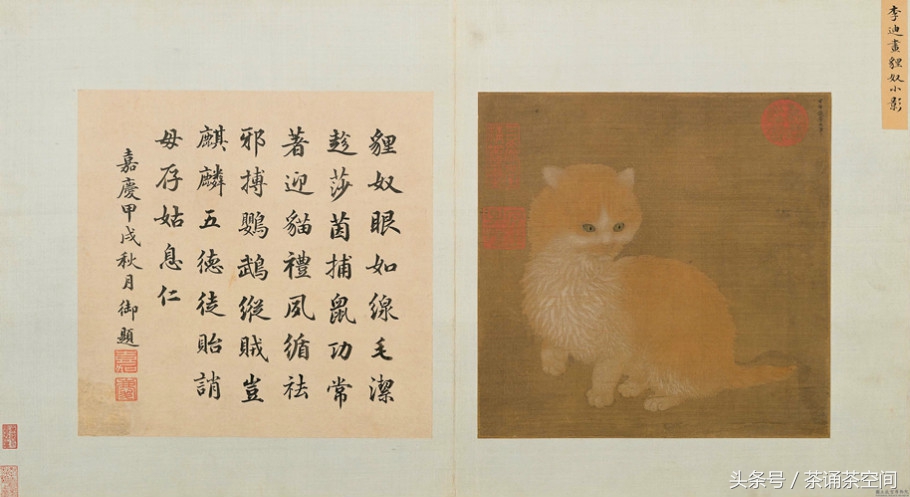 李迪畫貍奴小影
貍奴眼如線毛潔
趁莎茵捕鼠功常
著迎貓禮夙循祛
邪搏鸚鵡縱賊豈
麒麟五德徒貽誚
毋存姑息仁
嘉慶甲戌秋月御題
头条号 / 茶诵茶空间